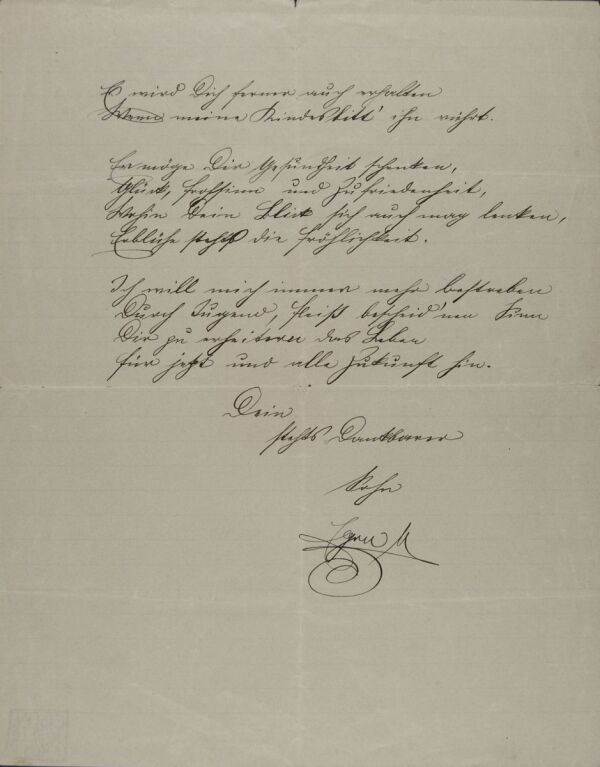 Er wird Dich ferner auch erhalten
Wenn meine Kindesbitt' ihn rührt.
Er möge Dir Gesundheit schenken,
Glück, Frohsinn und Zufriedenheit,
Wohin Dein Blick sich auch mag lenken,
Erblühe stehts die Fröhlichkeit.
Ich will mich immer mehr bestreben
Durch Tugend, Fleiß bescheid'nen Sinn
Dir zu erheitern das Leben
für jetzt und alle Zukunft hin.
Dein
stehts Dankbarer
Sohn